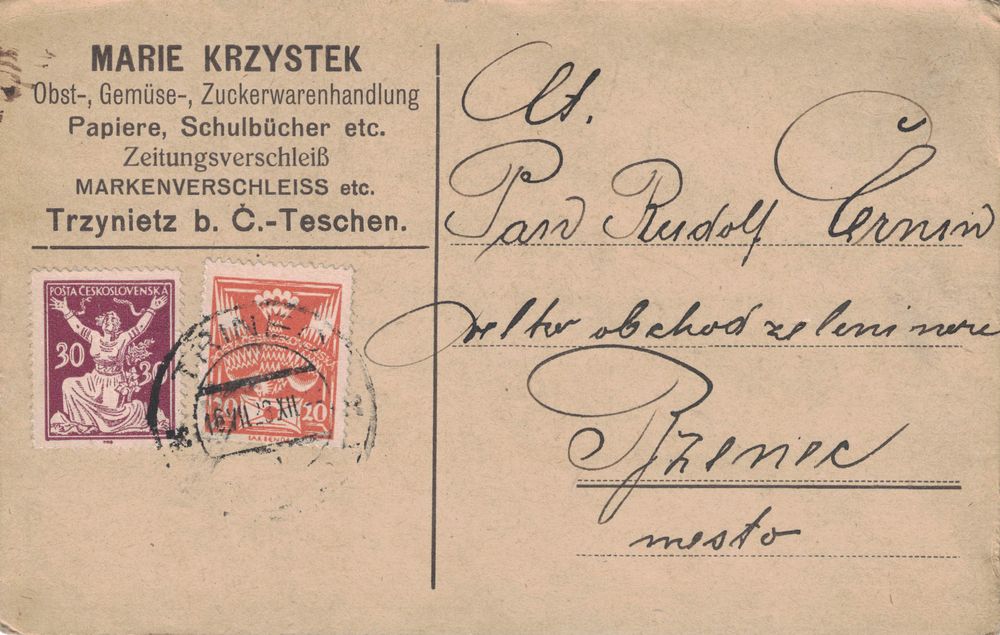 MARIE KRZYSTEK
Obst-, Gemüse-, Zuckerwarenhandlung
Papiere, Schulbücher etc.
Zeitungsverschleiß
MARKENVERSCHLEISS etc.
Trzynietz b. Č.-Teschen.
POŠTA ČESKOSLOVENSKÁ
30
30
20
20
Pan Rudolf Černin
velko obchod zeleninou
Bzenec
mesto